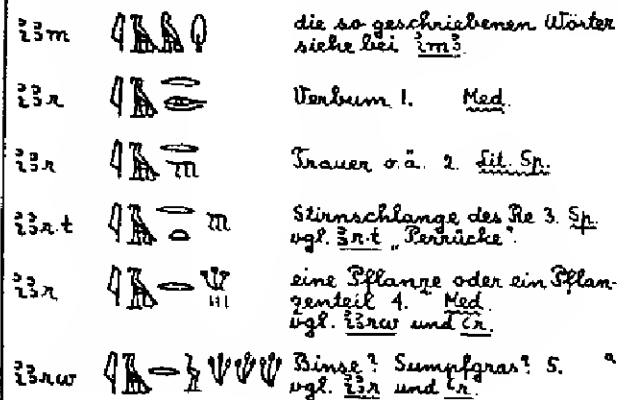 ı͗ꜣm die so geschriebenen Wörter
siehe bei ı͗mꜣ.
ı͗ꜣr Verbum 1. Med.
ı͗ꜣr Trauer o.ä. 2. Lit. Sp.
ı͗ꜣr.t Stirnschlange des Re 3. Sp.
vgl. ꜣr.t „Perrücke“.
ı͗ꜣr eine Pflanze oder ein Pflan-
zenteil 4. Med.
vgl. ı͗ꜣrw und ꜥr.
ı͗ꜣrw Binse? Sumpfgras? 5. a
vgl. ı͗ꜣr und ꜥr.